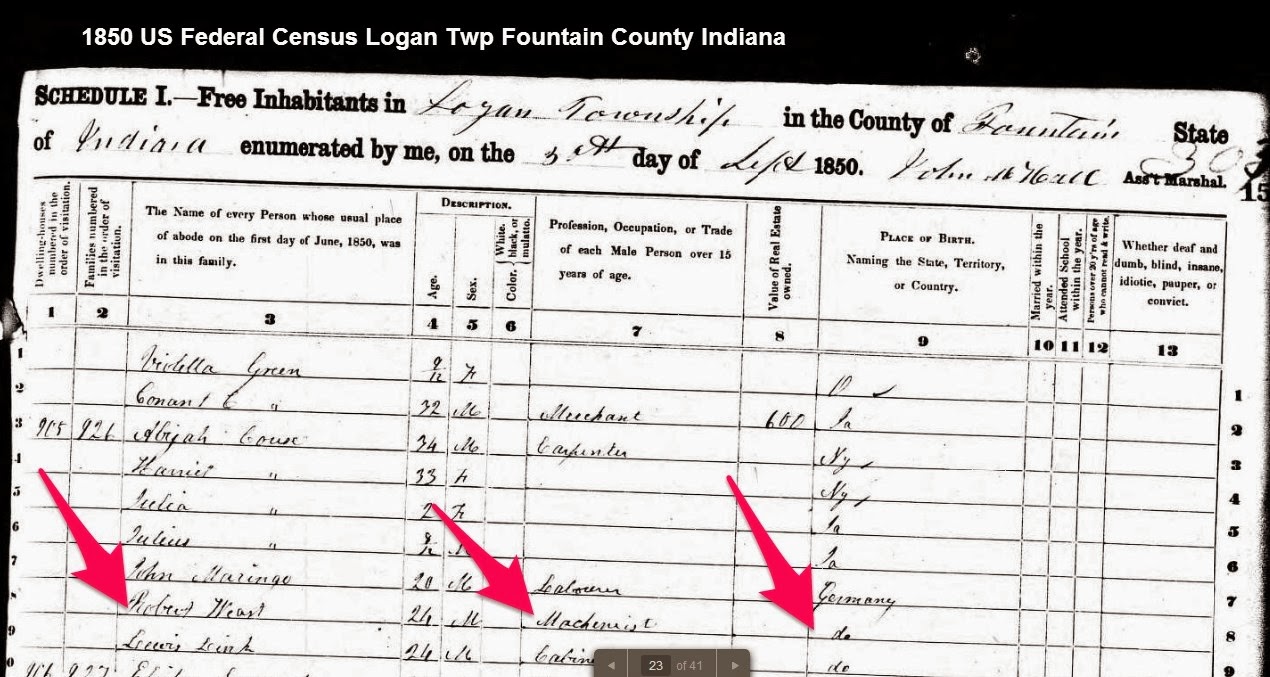 1850 US Federal Census Logan Twp Fountain County Indiana
SCHEDULE I.—Free Inhabitants in Logan Township in the County of Fountain State
of Indiana enumerated by me, on the 5th day of Sept 1850. John Ass't Marshal.
Dwelling-houses numbered in the order of visitation.
Families numbered in the order of visitation.
The Name of every Person whose usual place
of abode on the first day of June, 1850, was
in this family.
DESCRIPTION.
Age.
Sex.
Color, White, black, or mulatto.
Profession, Occupation, or Trade
of each Male Person over 15
years of age.
Value of Real Estate owned.
PLACE OF BIRTH.
Naming the State, Territory,
or Country.
Married within the year.
Attended School within the year.
Persons over 20 y'rs of age who cannot read & write.
Whether deaf and
dumb, blind, insane,
idiotic, pauper, or
convict.
1 2 3 4 5 6 7 8 9 10 11 12 13
1 Violetta Green 9/12 F O 1
2 Conant C " 32 M Merchant 600 Ia 2
3 905 926 Abijah Couse 34 M Carpenter Ny 3
4 Harriet " 33 F Ny 4
5 Julia " 2 F Ia 5
6 Julius " M Ia 6
7 John Maringo 20 M Labourer Germany 7
8 Robert 24 M Machenist do 8
9 Lewis 24 M Cabin do 9
906 927
23 of 41